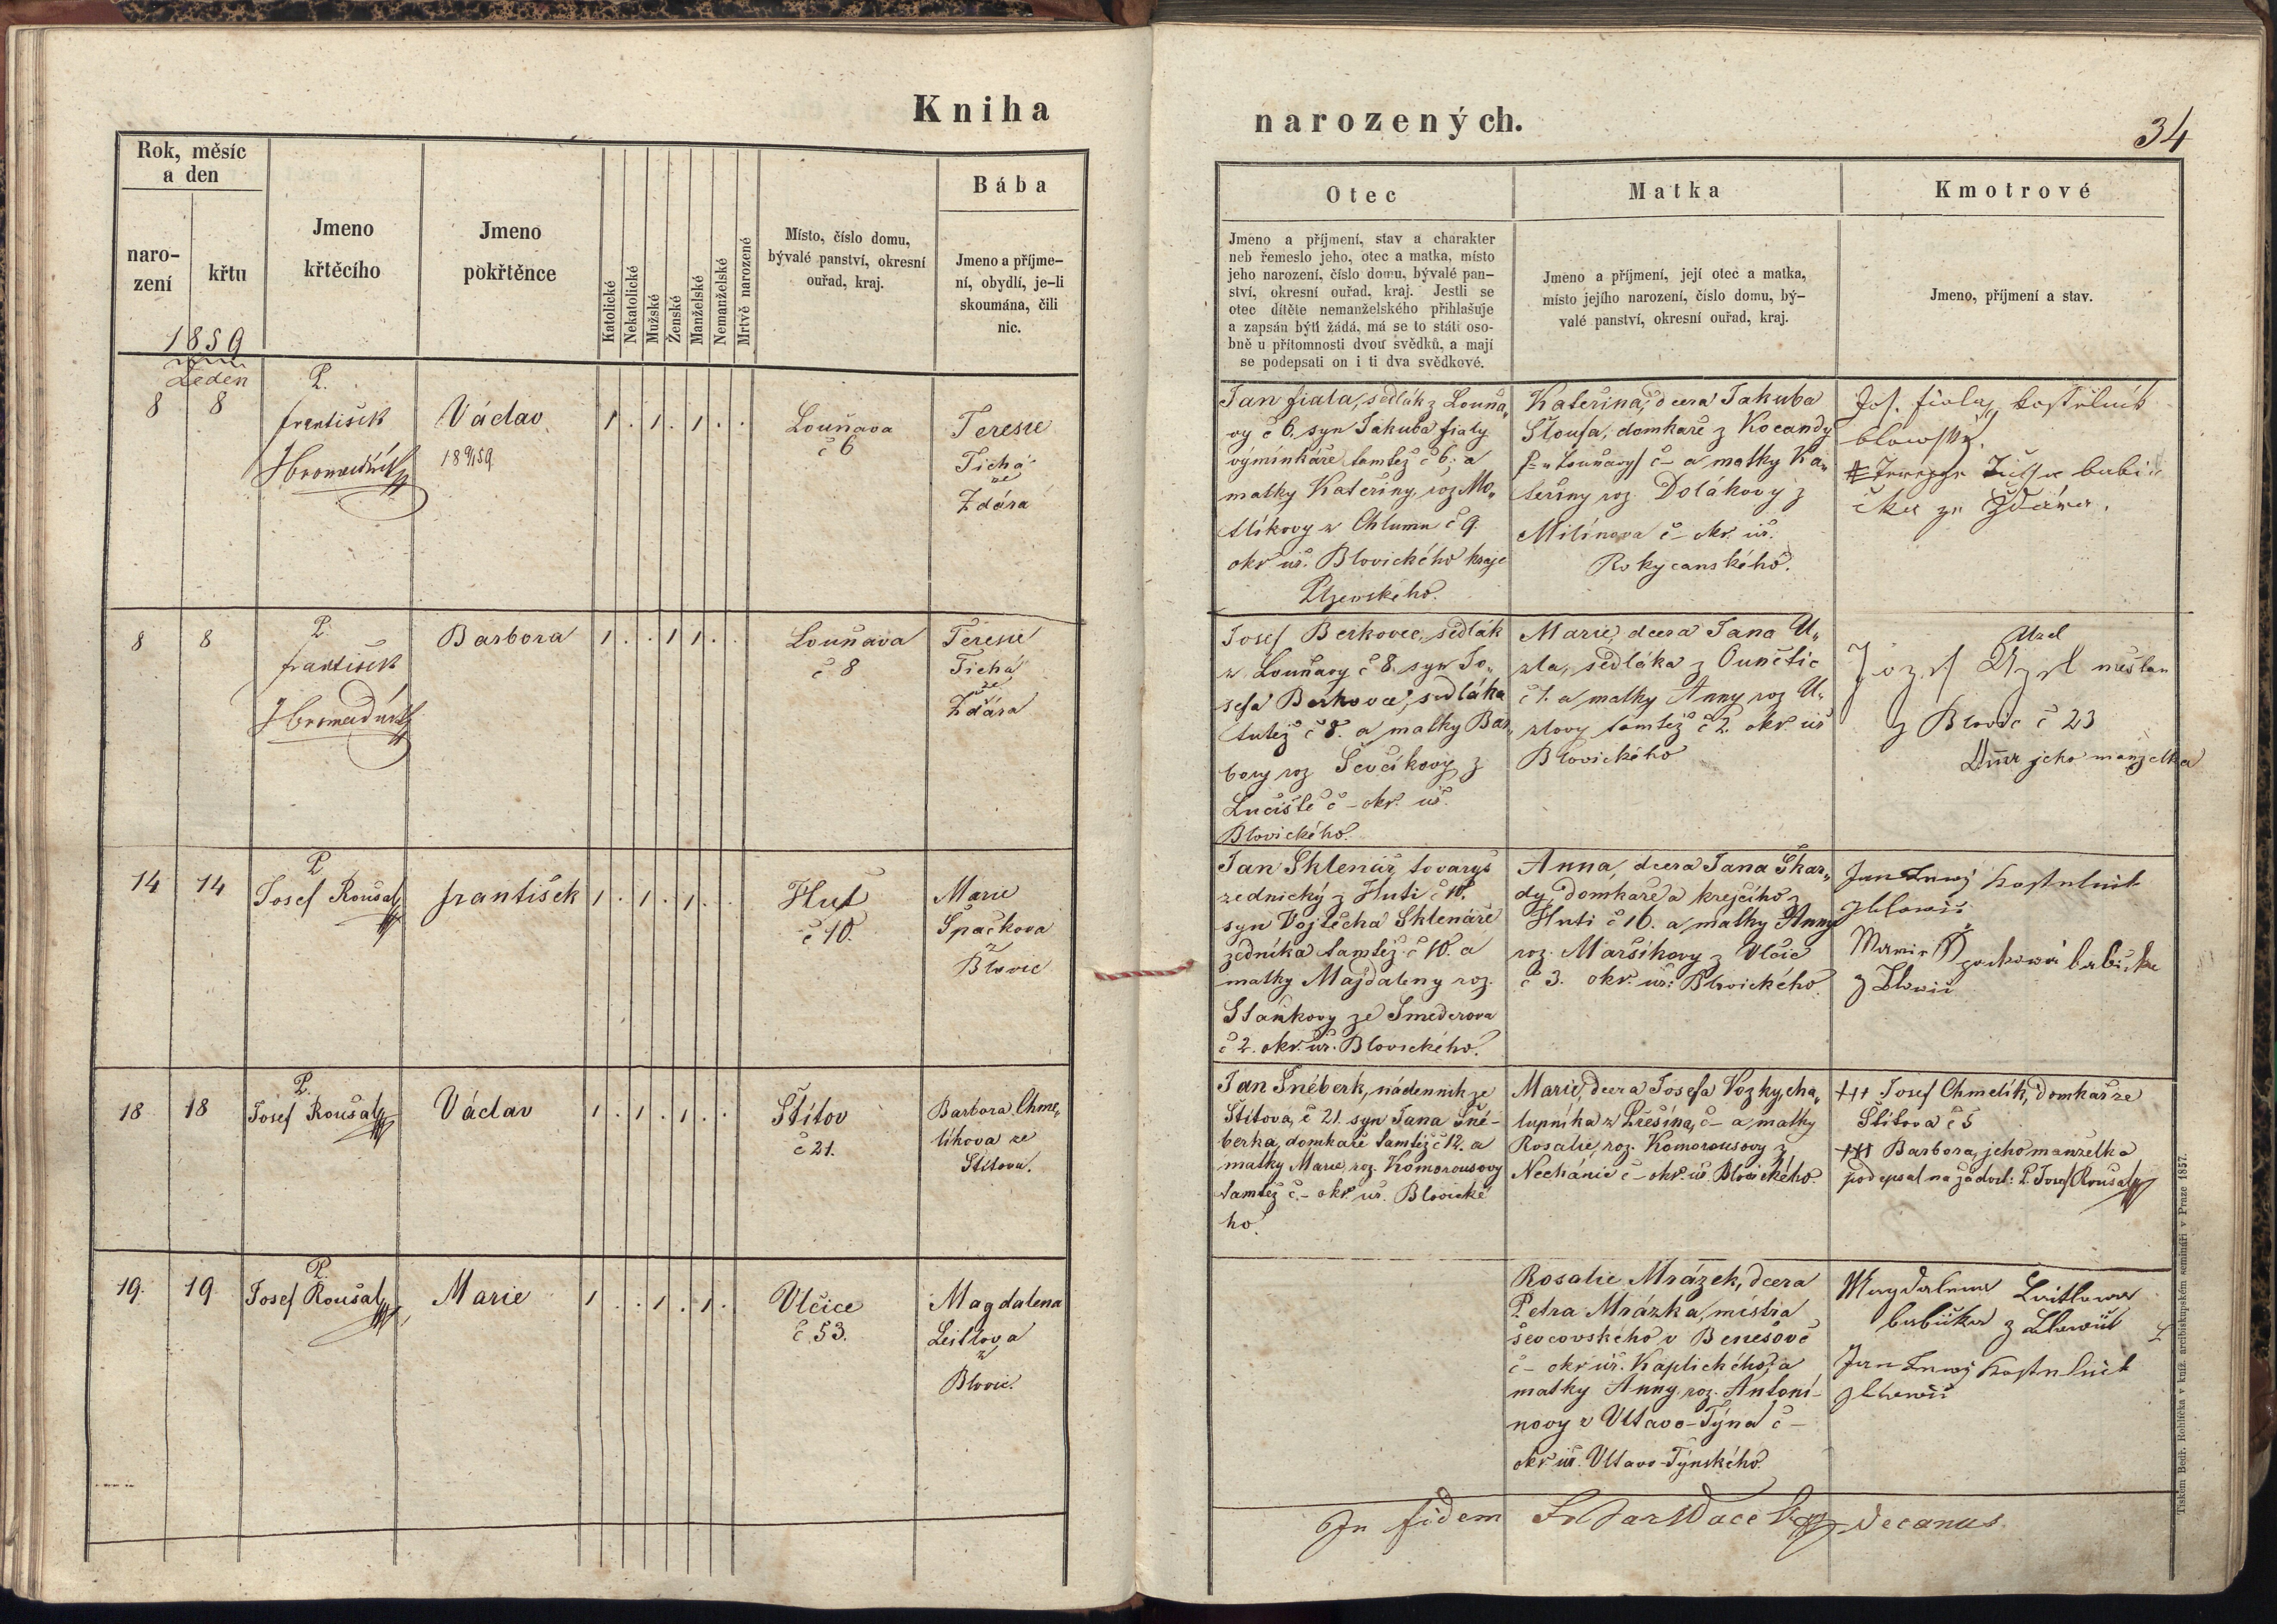 Kniha
Rok, měsíc
a den
naro-
zení
křtu
Jmeno
křtěcího
Jmeno
pokřtěnce
Katolické
Nekatolické
Mužské
Ženské
Manželské
Nemanželské
Mrtvě narozené
Místo, číslo domu,
bývalé panství, okresní
ouřad, kraj.
Bába
Jmeno a příjme-
ní, obydlí, je-li
skoumána, čili
nic.
1859
Leden
8 8
P.
František
Hromadník
Václav
18 9/1 59
1 . 1 . 1 . .
Louňava
č 6
Teresie
Tichá
ze
Ždára
8 8
P.
František
Hromadník
Barbora
1 . . 1 1 . .
Louňava
č 8
Teresie
Tichá
ze
Ždára
14 14
P.
Josef Roušal
František
1 . 1 . 1 . .
Huť
č 10.
Marie
Špačkova
z
Blovic
18 18
P.
Josef Roušal
Václav
1 . 1 . 1 . .
Štítov
č 21.
Barbora Chme„
líkova ze
Štítova.
19. 19
P.
Josef Roušal
Marie
1 . . 1 . 1 .
Vlčice
č. 53.
Magdalena
Leitlova
z
Blovic.
narozených.
34
Otec
Jmeno a příjmení, stav a charakter
neb řemeslo jeho, otec a matka, místo
jeho narození, číslo domu, bývalé pan-
ství, okresní ouřad, kraj. Jestli se
otec dítěte nemanželského přihlašuje
a zapsán býti žádá, má se to státi oso-
bně u přítomnosti dvou svědků, a mají
se podepsati on i ti dva svědkové.
Matka
Jmeno a příjmení, její otec a matka,
místo jejího narození, číslo domu, bý-
valé panství, okresní ouřad, kraj.
Kmotrové
Jmeno, příjmení a stav.
Jan Fiala, sedlák z Louňa„
vy č 6, syn Jakuba Fialy
výminkáře tamtéž č 6. a
matky Kateřiny, roz. Mo„
tlíkovy z Chlumu č 9.
okr. úř. Blovického kraje
Plzenského.
Kateřina, dcera Jakuba
Sloufa, domkaře z Kocandy
Louňavy) č – a matky Ka„
teřiny roz. Dolákovy z
Milínova č – okr. úř.
Rokycanského.
Jos. Fiala, kostelník
blowský.
babi
čka ze Ždára.
Josef Berkovec, sedlák
z Louňavy č 8. syn Jo„
sefa Berkovce, sedláka
tutéž č 8. a matky Bar„
bory roz. Ševčíkovy z
Lučiště č – okr. úř.
Blovického.
Marie, dcera Jana U„
zla, sedláka z Ounětic
č 1. a matky Anny roz U„
zlovy tamtéž č 2. okr. úř
Blovického
Uzel
Jozef Uzel měšťan
z Blovic č 23
Anna jeho manželka
Jan Sklenář, tovaryš
zednický z Huti č 10.
syn Vojtěcha Sklenáře
zedníka tamtéž č 10. a
matky Majdaleny roz.
Staňkovy ze Smederova
č 2. okr. úř. Blovického.
Anna, dcera Jana Škar„
dy, domkaře a krejčího z
Huti č 16. a matky Anny
roz. Maršíkovy z Vlčic
č 3. okr. úř. Blovického
Jan kostelnik
z blowic
Marie Špačková babička
z Blowic
Jan Šnéberk, nádenník ze
Štítova, č 21. syn Jana Šné-
berka, domkaře tamtéž č 12. a
matky Marie, roz. Komorousovy
tamtéž č. – okr. úř. Blovické
ho.
Marie, dcera Josefa Vozky, cha„
lupníka z Lřesína, č – a matky
Rosalie, roz. Komorousovy z
Nechánic č – okr. úř. Blovického.
+++ Josef Chmelík, domkář ze
Štítova č 5
+++ Barbora, jeho manželka
podepsal na žádost: P. Josef Roušal
Rosalie Mrázek, dcera
Petra Mrázka, místra
ševcovského v Benešově
č – okr úř. Kaplického, a
matky Anny roz. Antoní-
novy z Vltavo-Týna č –
okr. úř. Vltavo-Týnského.
Magdalena Leitlowa
babička z Blowic
Jan kostelnik
z blowic
In fidem decanus
Tiskem Bedř. Rohlíčka v kníž. arcibiskupském semináři v Praze 1857.